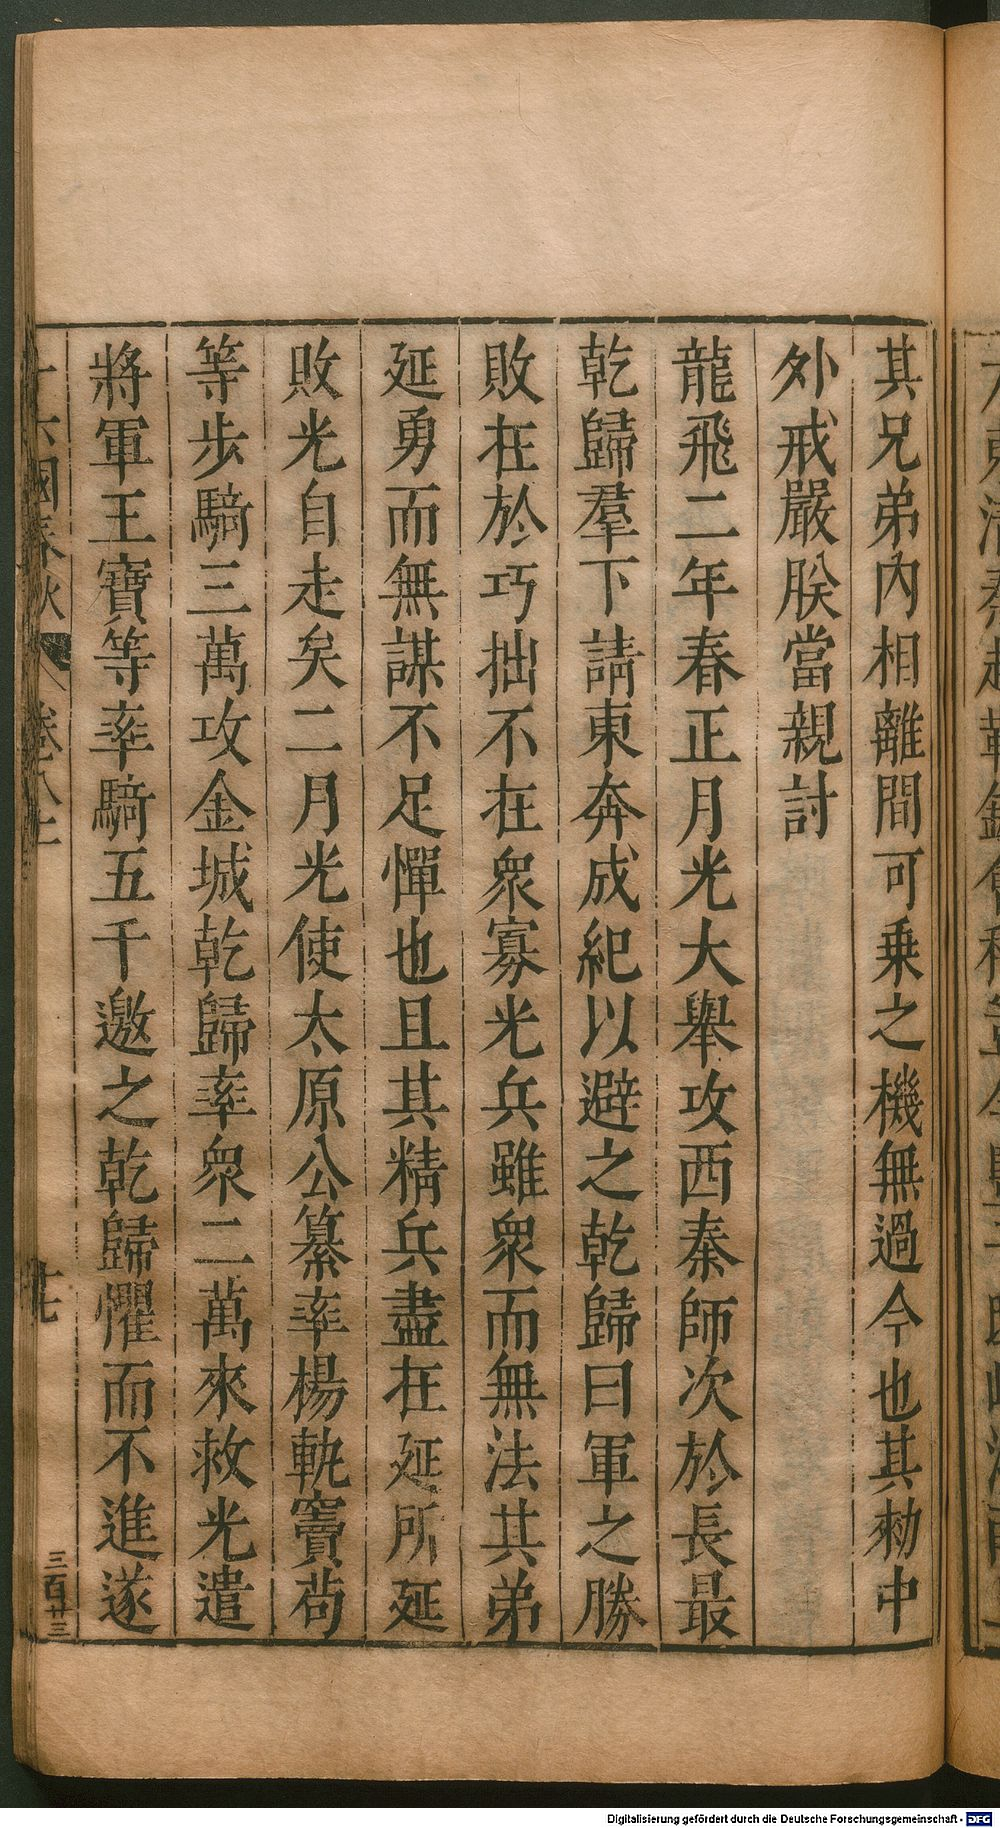 其兄弟內相離間可乗之機無過今也其勑中
外戒嚴朕當親討
龍飛二年春正月光大舉攻西秦師次於長最
乾歸羣下請東奔成紀以避之乾歸曰軍之勝
敗在於巧拙不在衆寡光兵雖衆而無法其弟
延勇而無謀不足憚也且其精兵盡在延所延
敗光自走矣二月光使太原公纂率楊軌竇苟
等步騎三萬攻金城乾歸率衆二萬來救光遣
將軍王寶等率騎五千邀之乾歸懼而不進遂
十六國春秋 卷八十 廿七 三百廿三
Digitalisierung gefördert durch die Deutsche Forschungsgemeinschaft - DFG